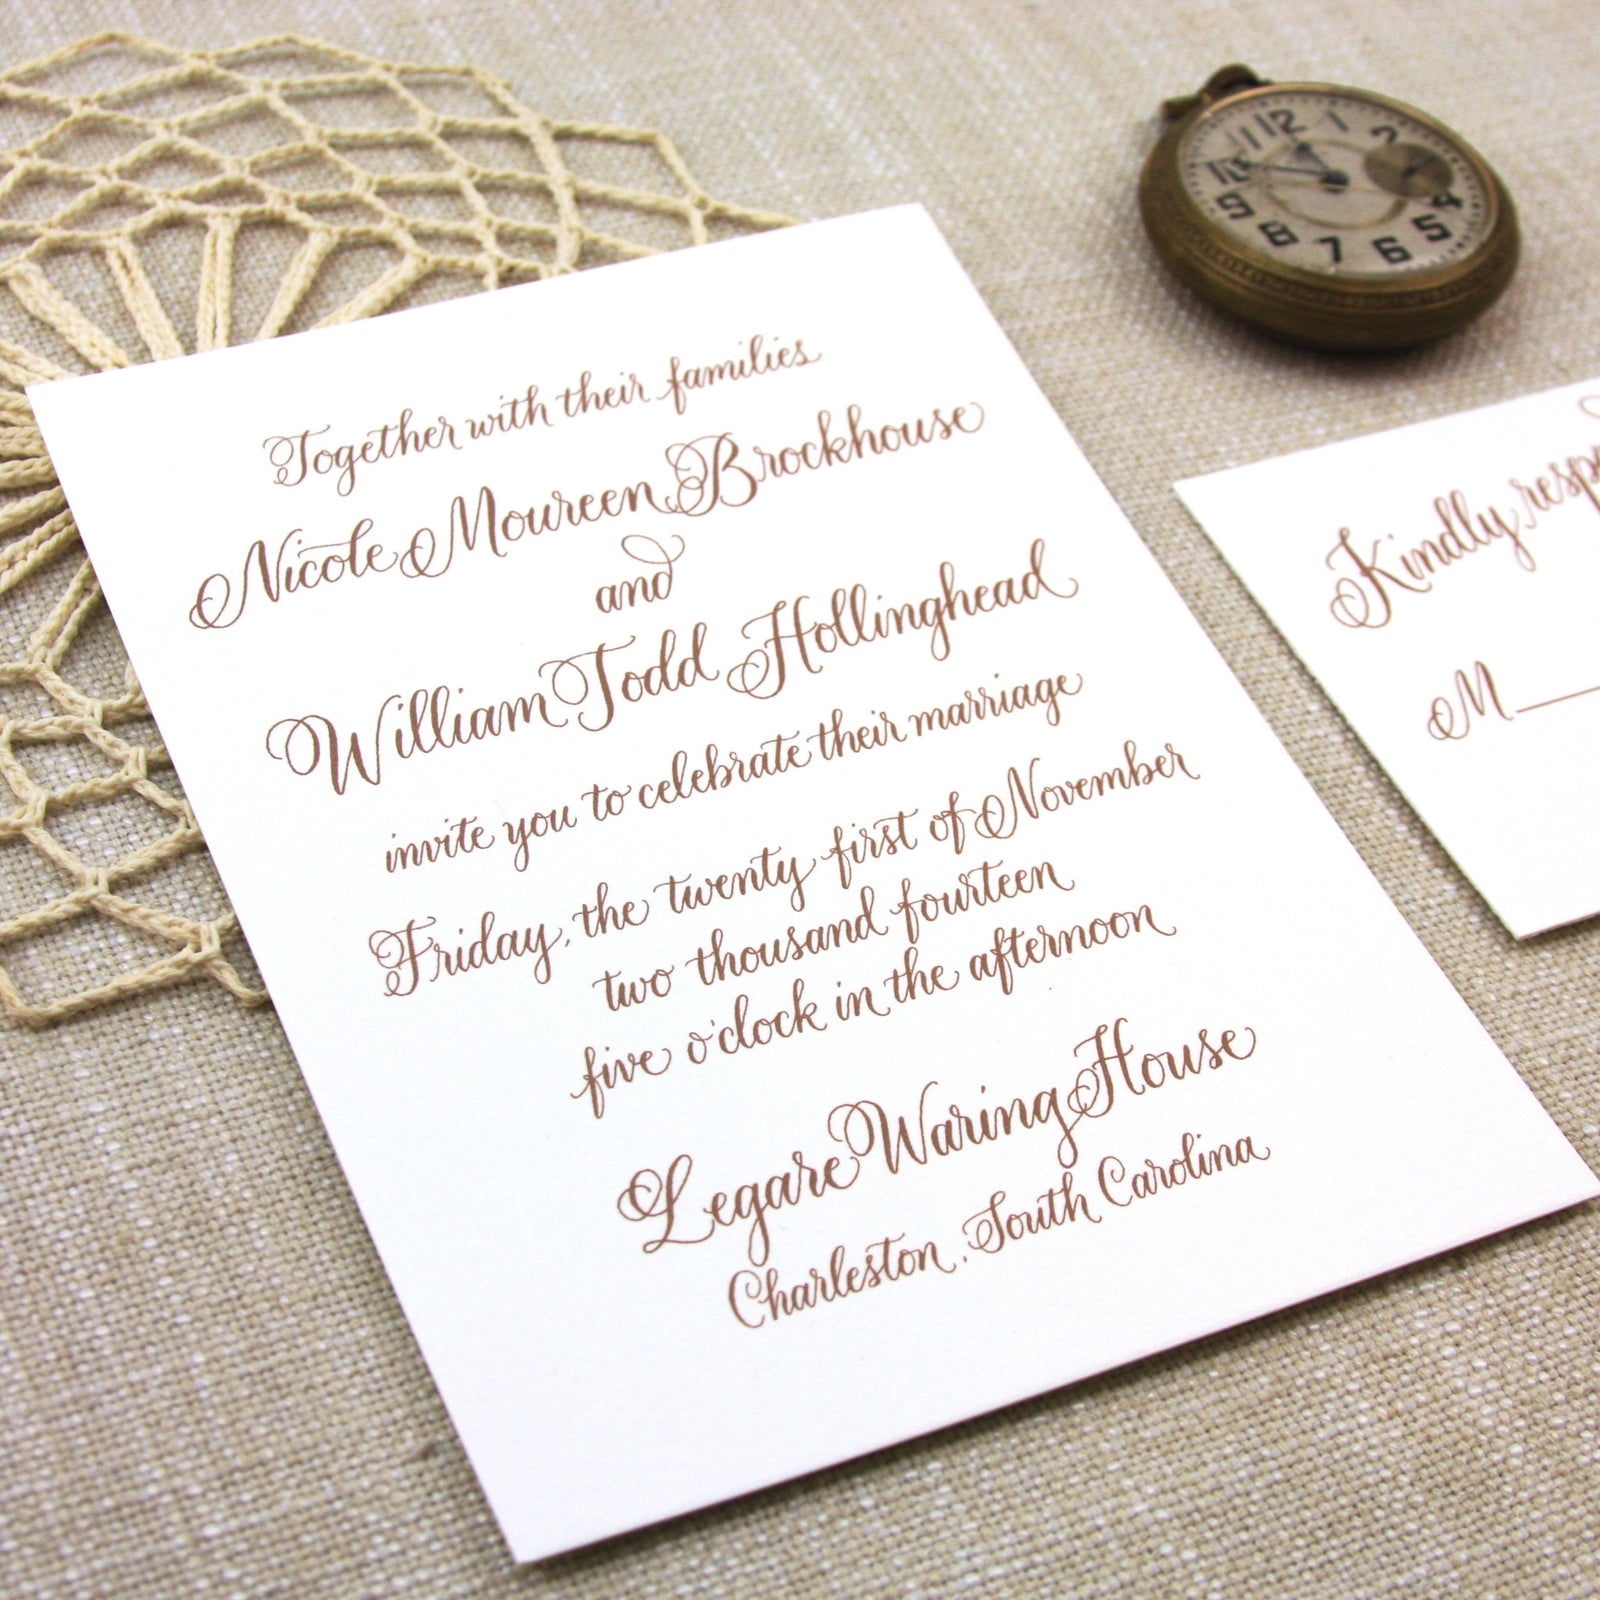 Together with their families
Nicole Moureen Brockhouse
and
William Todd Hollinghead
invite you to celebrate their marriage
Friday, the twenty first of November
two thousand fourteen
five o'clock in the afternoon
Legare Waring House
Charleston, South Carolina
Kindly
M
12
1
2
4
5
6
7
8
9
10
11